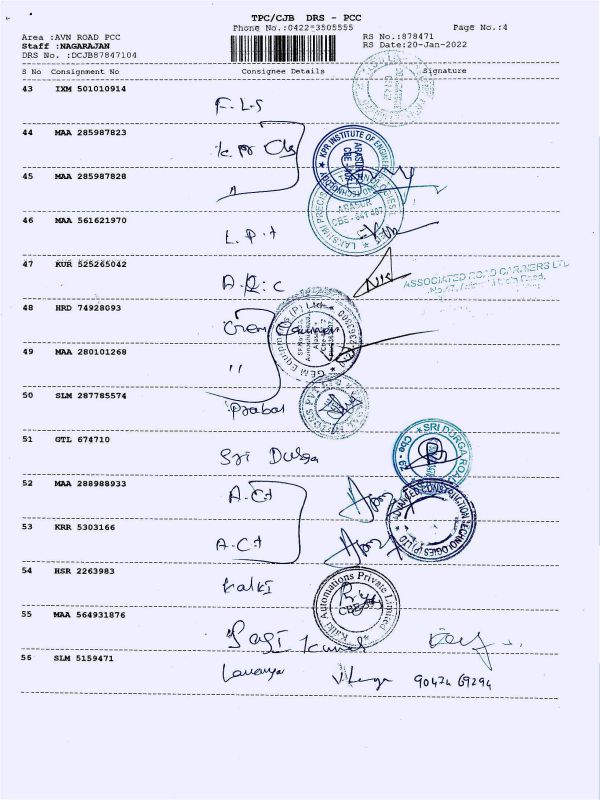 TPC/CJB DRS - PCC
Phone No.:0422-3505555
Page No.:4
Area :AVN ROAD PCC
RS No.:878471
Staff :NAGARAJAN
RS Date:20-Jan-2022
DRS No. :DCJB87847104
S No Consignment No Consignee Details Signature
43 IXM 501010914
F.L.S
44 MAA 285987823
KPR INSTITUTE OF ENGINEERING
ARASUR
CBE-407
45 MAA 285987828
"
LAKSHMI PRECISION
ARASUR
CBE - 641 407
46 MAA 561621970
L.P.t
47 KUR 525265042
A.R.C
ASSOCIATED ROAD CARRIERS LTD
48 HRD 74928093
GEM Equipments (P) Ltd
49 MAA 280101268
"
50 SLM 287785574
Prabas
51 GTL 674710
Sri Durga
SRI DURGA ROAD
Cbe - 62
52 MAA 288988933
A.C.t
ADVANCED CONSTRUCTION TECHNOLOGIES (P) LTD
53 KRR 5303166
A.C.t
54 HSR 2263983
kalki
Kalki Automations Private Limited
55 MAA 564931876
56 SLM 5159471
Lavanya
90474 69294